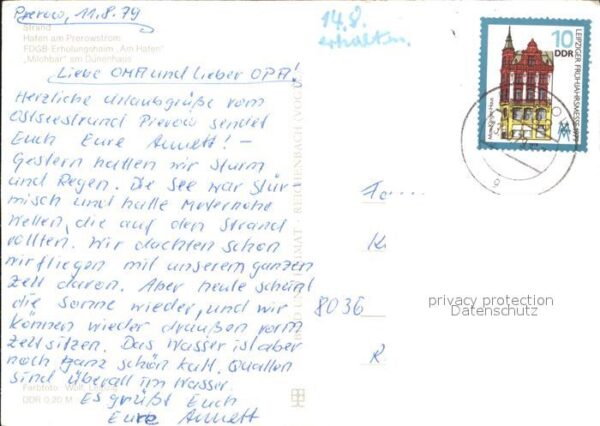 Prerow, 11.8.79
Strand
Hafen am Prerowstrom
FDGB-Erholungsheim „Am Hafen"
„Milchbar" am Dünenhaus
Liebe OMA und lieber OPA!
Herzliche Urlaubsgrüße vom
Ostseestrand Prerow sendet
Euch Eure Annett! –
Gestern hatten wir Sturm
und Regen. Die See war stür
misch und hatte Meterhohe
Wellen, die auf den Strand
rollten. Wir dachten schon
wir fliegen mit unserem ganzen
Zelt davon. Aber heute scheint
die Sonne wieder, und wir
können wieder draußen vorm
Zelt sitzen. Das Wasser ist aber
noch ganz schön kalt. Quallen
sind überall im Wasser.
Es grüßt Euch
Eure Annett
Farbfoto: Wolf,
DDR 0,20 M
BILD UND HEIMAT · REICHENBACH (VOGTL)
14.8.
erhalten.
10
DDR
LEIPZIGER FRÜHJAHRSMESSE
Fa....
K
8036
R
privacy protection
Datenschutz